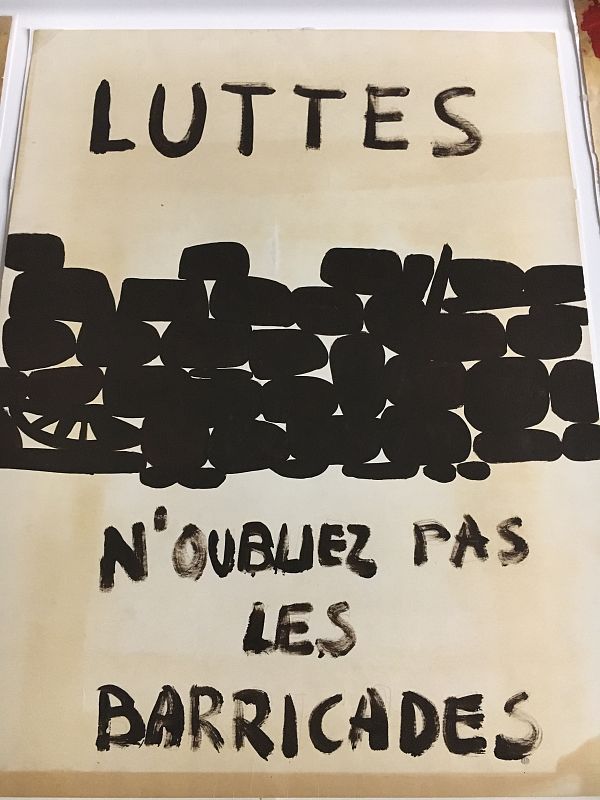 LUTTES
N'OUBLIEZ PAS
LES
BARRICADES